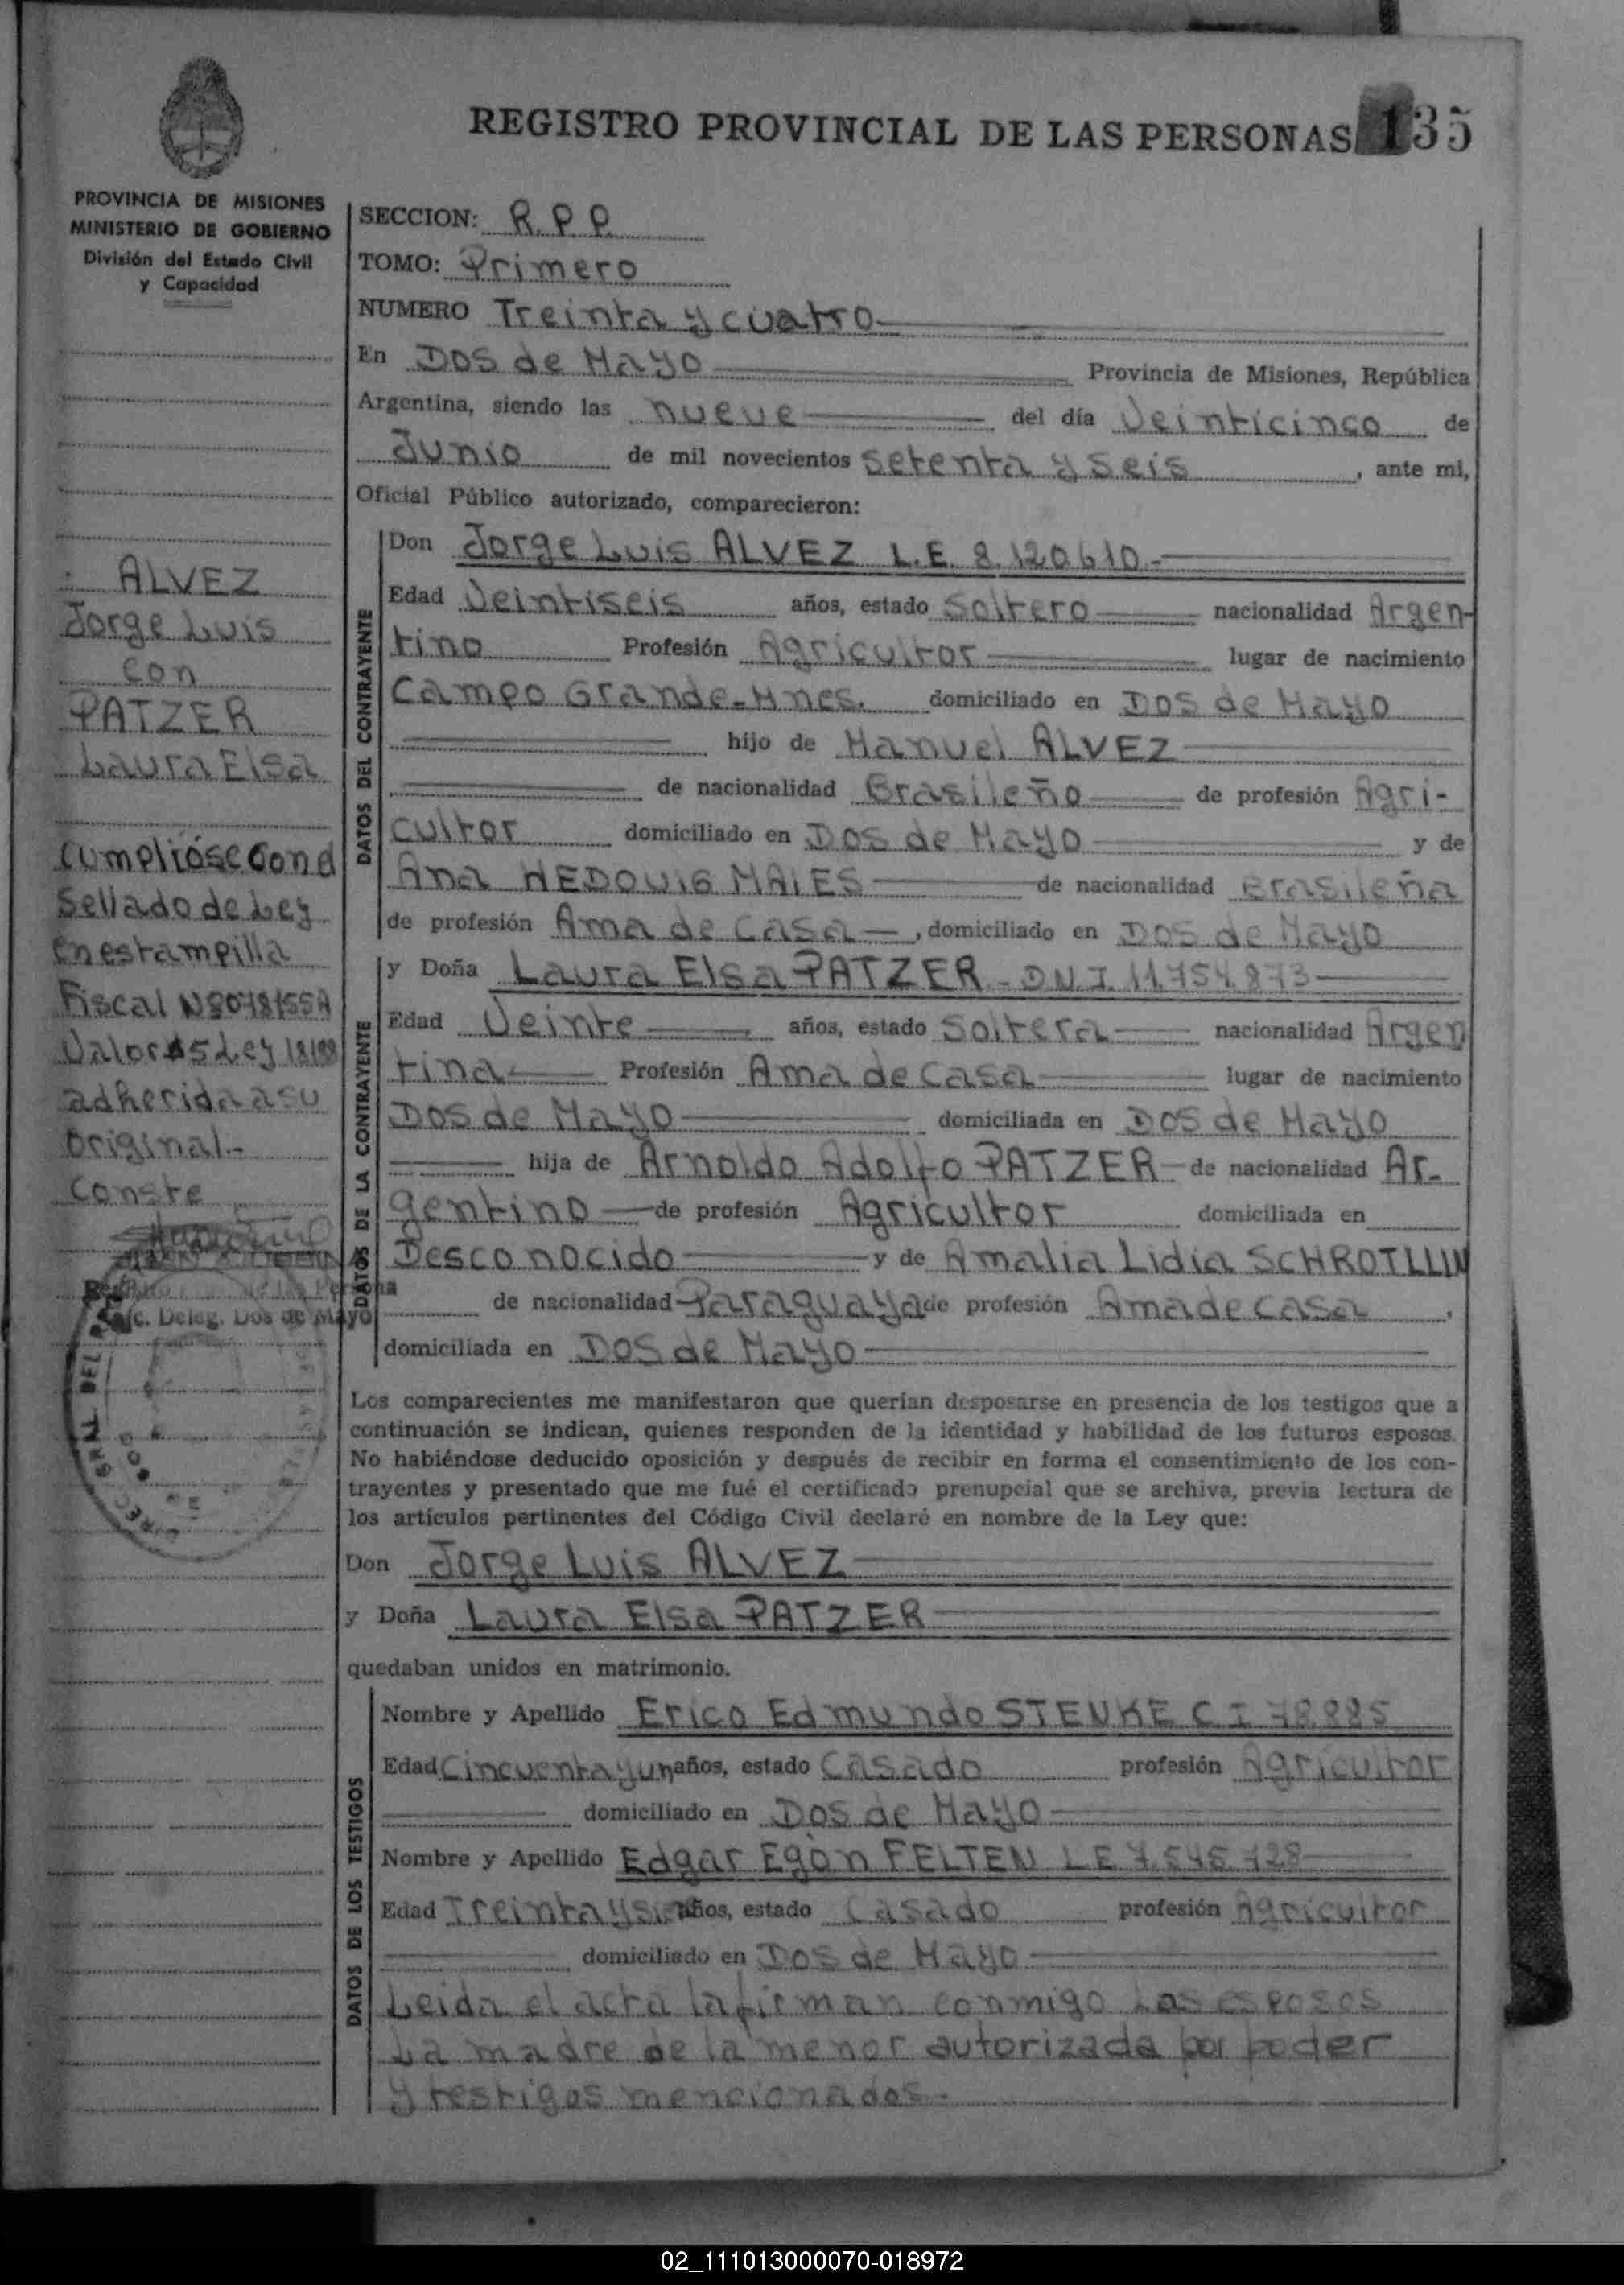 REGISTRO PROVINCIAL DE LAS PERSONAS 135
PROVINCIA DE MISIONES
MINISTERIO DE GOBIERNO
División del Estado Civil
y Capacidad
ALVEZ
Jorge Luis
con
PATZER
Laura Elsa
Cumplióse con el
Sellado de Ley
en estampilla
Fiscal
Valor $5 Ley
adherida a su
original.-
Conste
Deleg. Dos de Mayo
SECCION: R.P.P.
TOMO: Primero
NUMERO Treinta y cuatro
En Dos de Mayo Provincia de Misiones, República
Argentina, siendo las nueve del día Veinticinco de
Junio de mil novecientos setenta y seis, ante mi,
Oficial Público autorizado, comparecieron:
DATOS DEL CONTRAYENTE
Don Jorge Luis ALVEZ L.E. 8.120.610.-
Edad Veintiseis años, estado Soltero nacionalidad Argen-
tino Profesión Agricultor lugar de nacimiento
Campo Grande-Mnes. domiciliado en Dos de Mayo
hijo de Manuel ALVEZ
de nacionalidad Brasileño de profesión Agri-
cultor domiciliado en Dos de Mayo y de
Ana HEDOUIG MAIES de nacionalidad Brasileña
de profesión Ama de Casa, domiciliado en Dos de Mayo
DATOS DE LA CONTRAYENTE
y Doña Laura Elsa PATZER - D.N.I. 11.754.873
Edad Veinte años, estado Soltera nacionalidad Argen
tina Profesión Ama de Casa lugar de nacimiento
Dos de Mayo domiciliada en Dos de Mayo
hija de Arnoldo Adolfo PATZER de nacionalidad Ar-
gentino de profesión Agricultor domiciliada en
Desconocido y de Amalia Lidia SCHROTLLIN
de nacionalidad Paraguaya de profesión Ama de Casa,
domiciliada en Dos de Mayo
Los comparecientes me manifestaron que querían desposarse en presencia de los testigos que a
continuación se indican, quienes responden de la identidad y habilidad de los futuros esposos.
No habiéndose deducido oposición y después de recibir en forma el consentimiento de los con-
trayentes y presentado que me fué el certificado prenupcial que se archiva, previa lectura de
los artículos pertinentes del Código Civil declaré en nombre de la Ley que:
Don Jorge Luis ALVEZ
y Doña Laura Elsa PATZER
quedaban unidos en matrimonio.
DATOS DE LOS TESTIGOS
Nombre y Apellido Erico Edmundo STENKE C I 78.885
Edad Cincuenta y un años, estado Casado profesión Agricultor
domiciliado en Dos de Mayo
Nombre y Apellido Edgar Egon FELTEN L E 7.545.728
Edad Treinta y años, estado Casado profesión Agricultor
domiciliado en Dos de Mayo
Leida el acta la firman conmigo Los esposos
La madre de la menor autorizada por poder
y testigos mencionados.-
02_111013000070-018972